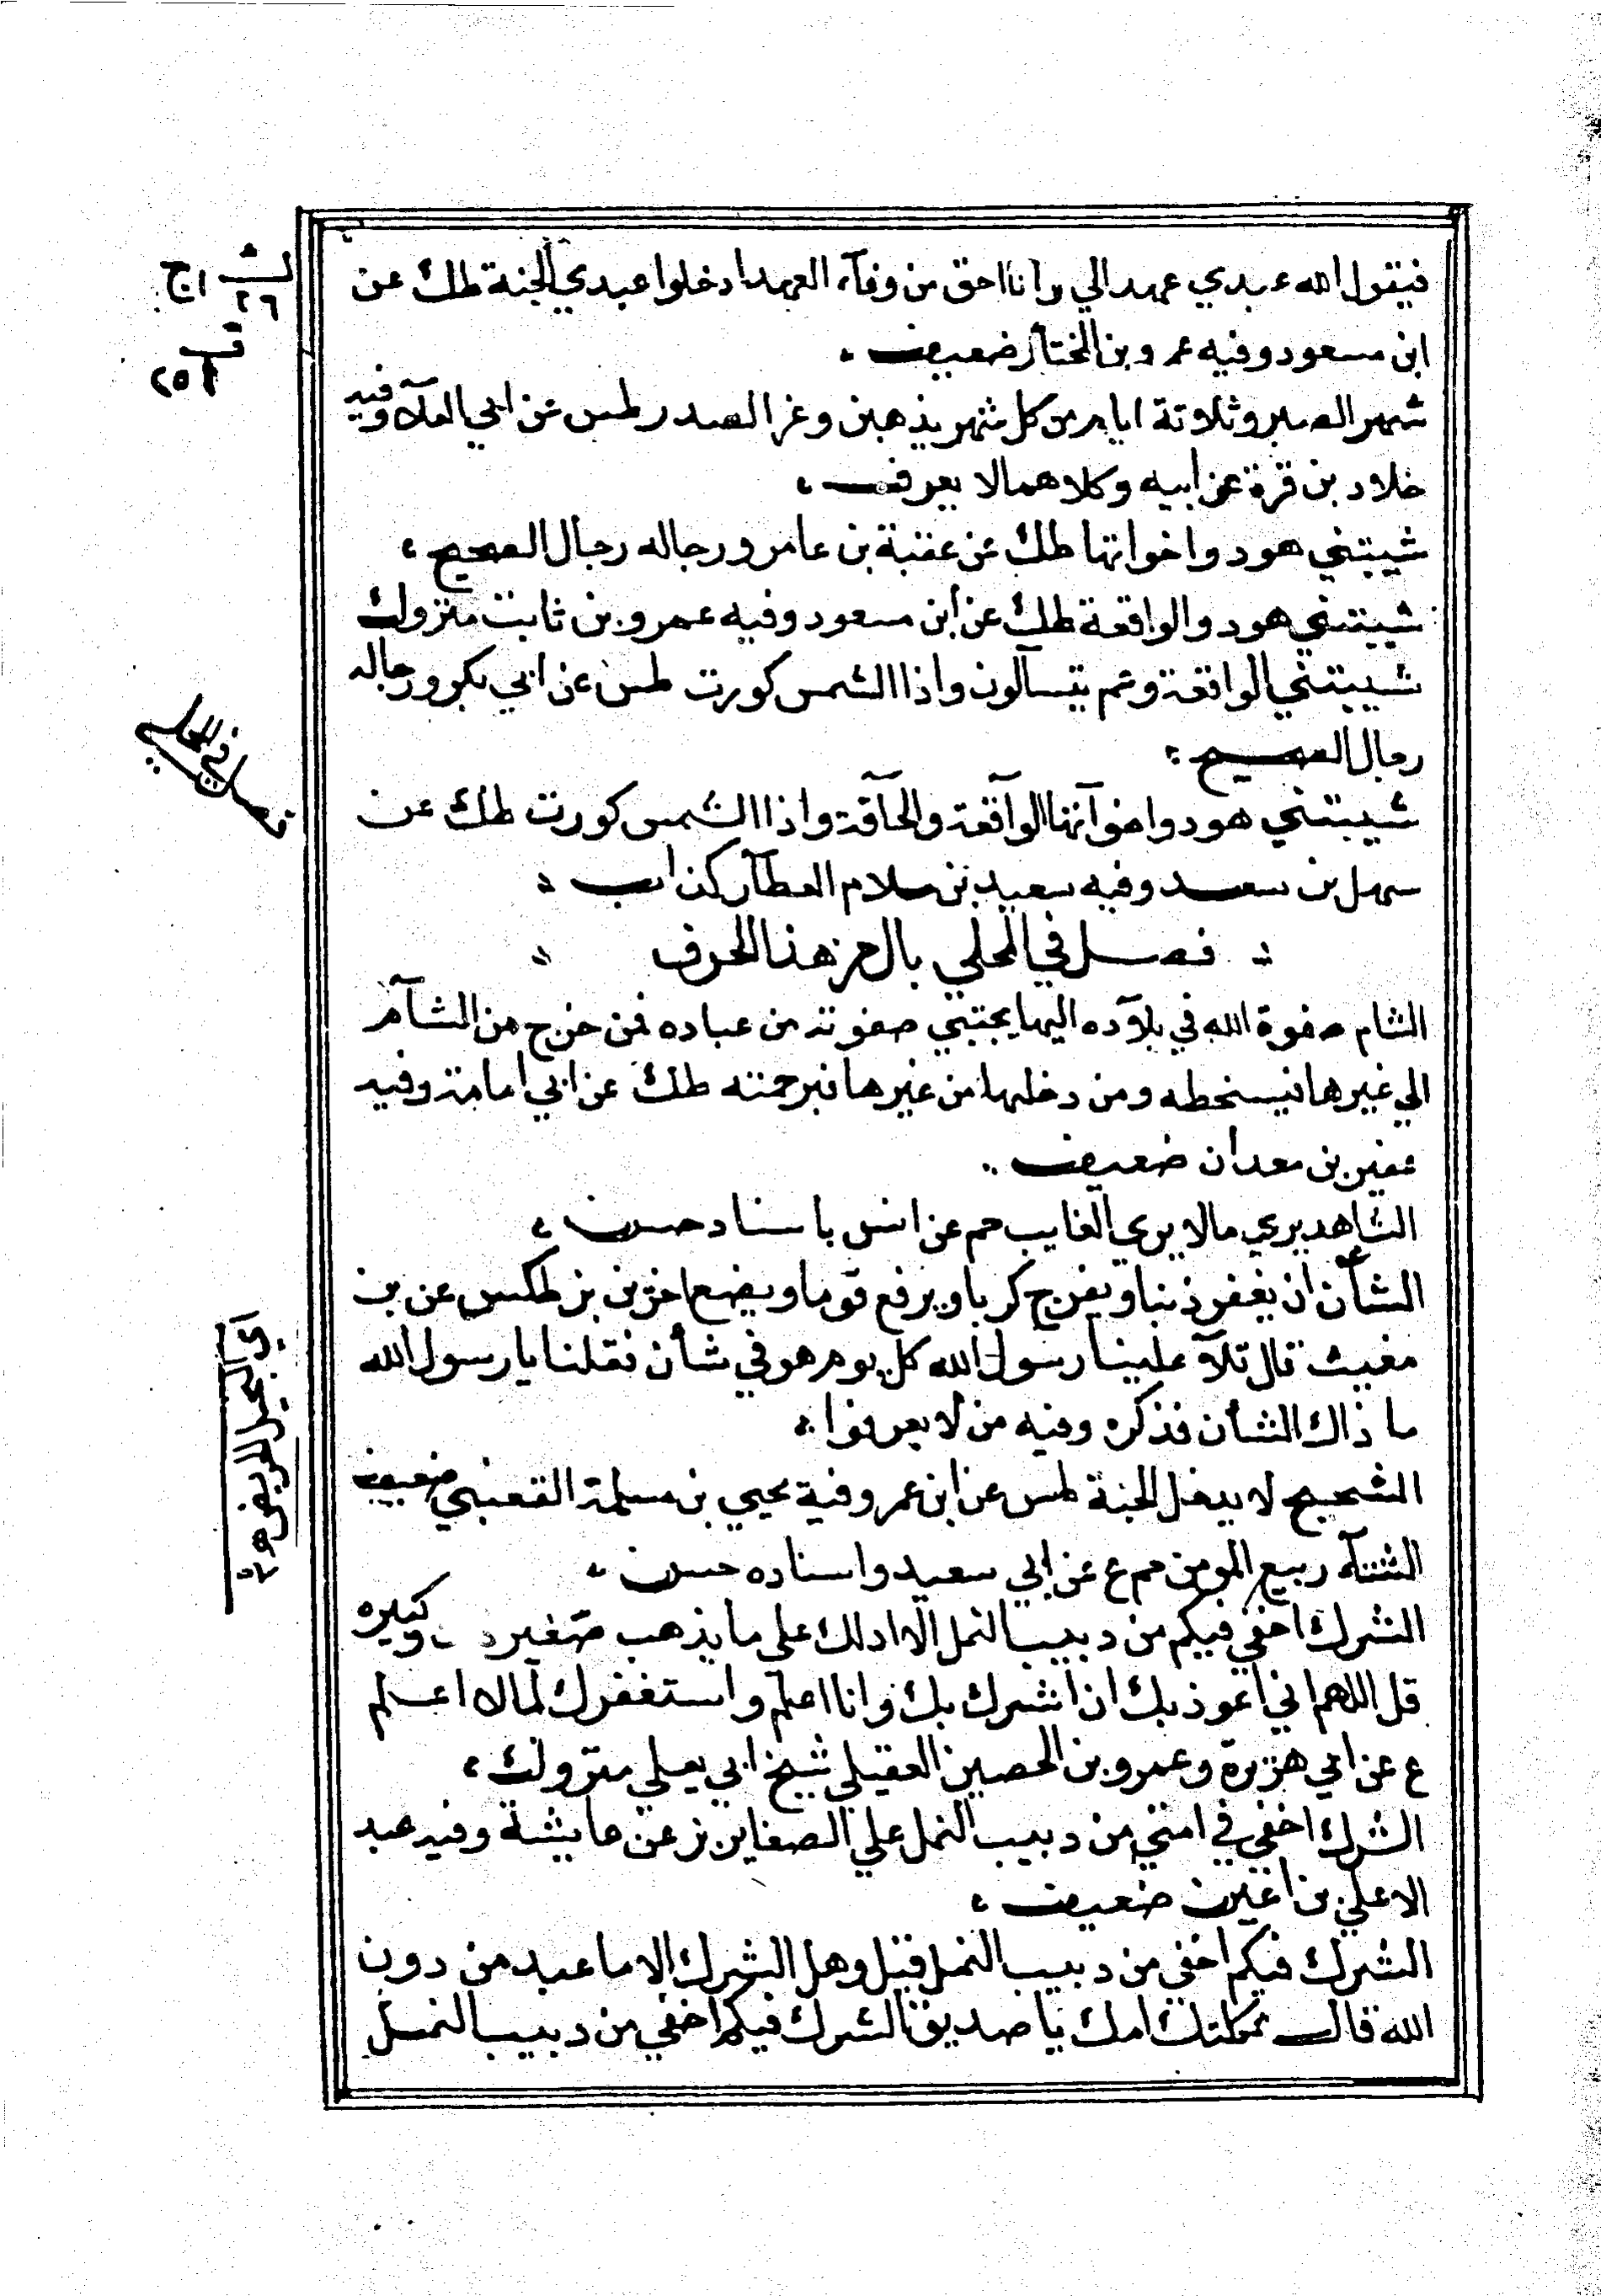 فيقول الله عبدي عهد الي وانا احق من وفآء العهد ادخلوا عبدي الجنة طك عن
ابن مسعود وفيه عمر وبن المختار ضعيف
شهر الصبر وثلاثة ايام من كل شهر يذهبن وغر الصدر طس عن ابي العلآء وفيه
خلاد بن قرة عن ابيه وكلاهما لا يعرف
شيبتني هود واخواتها طك عن عقبة بن عامر ورجاله رجال الصحيح
شيبتني هود والواقعة طك عن ابن مسعود وفيه عمرو بن ثابت متروك
شيبتني الواقعة وعم يتسآلون واذا الشمس كورت طس عن ابي بكر ورجاله
رجال الصحيح
شيبتني هود واخوآتها الوآقعة والحآقة واذا الشمس كورت طك عن
سهل بن سعد وفيه سعيد بن سلام العطآر كذاب
فصل في المحلي بال من هذا الحرف
الشام صفوة الله في بلآده اليها يجتبي صفوته من عباده فمن خرج من الشآم
الي غيرها فبسخطه ومن دخلها من غيرها فبرحمته طك عن ابي امامة وفيه
عفير بن معدان ضعيف
الشاهد يري مالا يري الغايب حم عن انس باسناد حسن
الشأن ان يغفر ذنبا ويفرج كربا ويرفع قوما ويضع اخرين بز طكس عن بن
مغيث قال تلآ علينا رسول الله كل يوم هو في شأن فقلنا يا رسول الله
ما ذاك الشأن فذكره وفيه من لا يعرفوا
الشحيح لا يدخل الجنة طس عن ابن عمر وفية يحيي بن مسلمة القعنبي ضعيف
الشتآء ربيع المومن حم ع عن ابي سعيد واسناده حسن
الشرك اخفي فيكم من دبيب النمل الا ادلك علي ما يذهب صغيره وكبيره
قل اللهم اني اعوذ بك ان اشرك بك وانا اعلم واستغفرك لمالا اعلم
ع عن ابي هريرة وعمرو بن الحصين العقيلي شيخ ابي يعلي متروك
الشرك اخفي في امتي من دبيب النمل علي الصفا بز عن عايشة وفيه عبد
الاعلي بن اعين ضعيف
الشرك فيكم اخفي من دبيب النمل قيل وهل الشرك الا ما عبد من دون
الله قال ثكلتك امك يا صديق الشرك فيكم اخفي من دبيب النمل
٢٦
فصل في المحلي